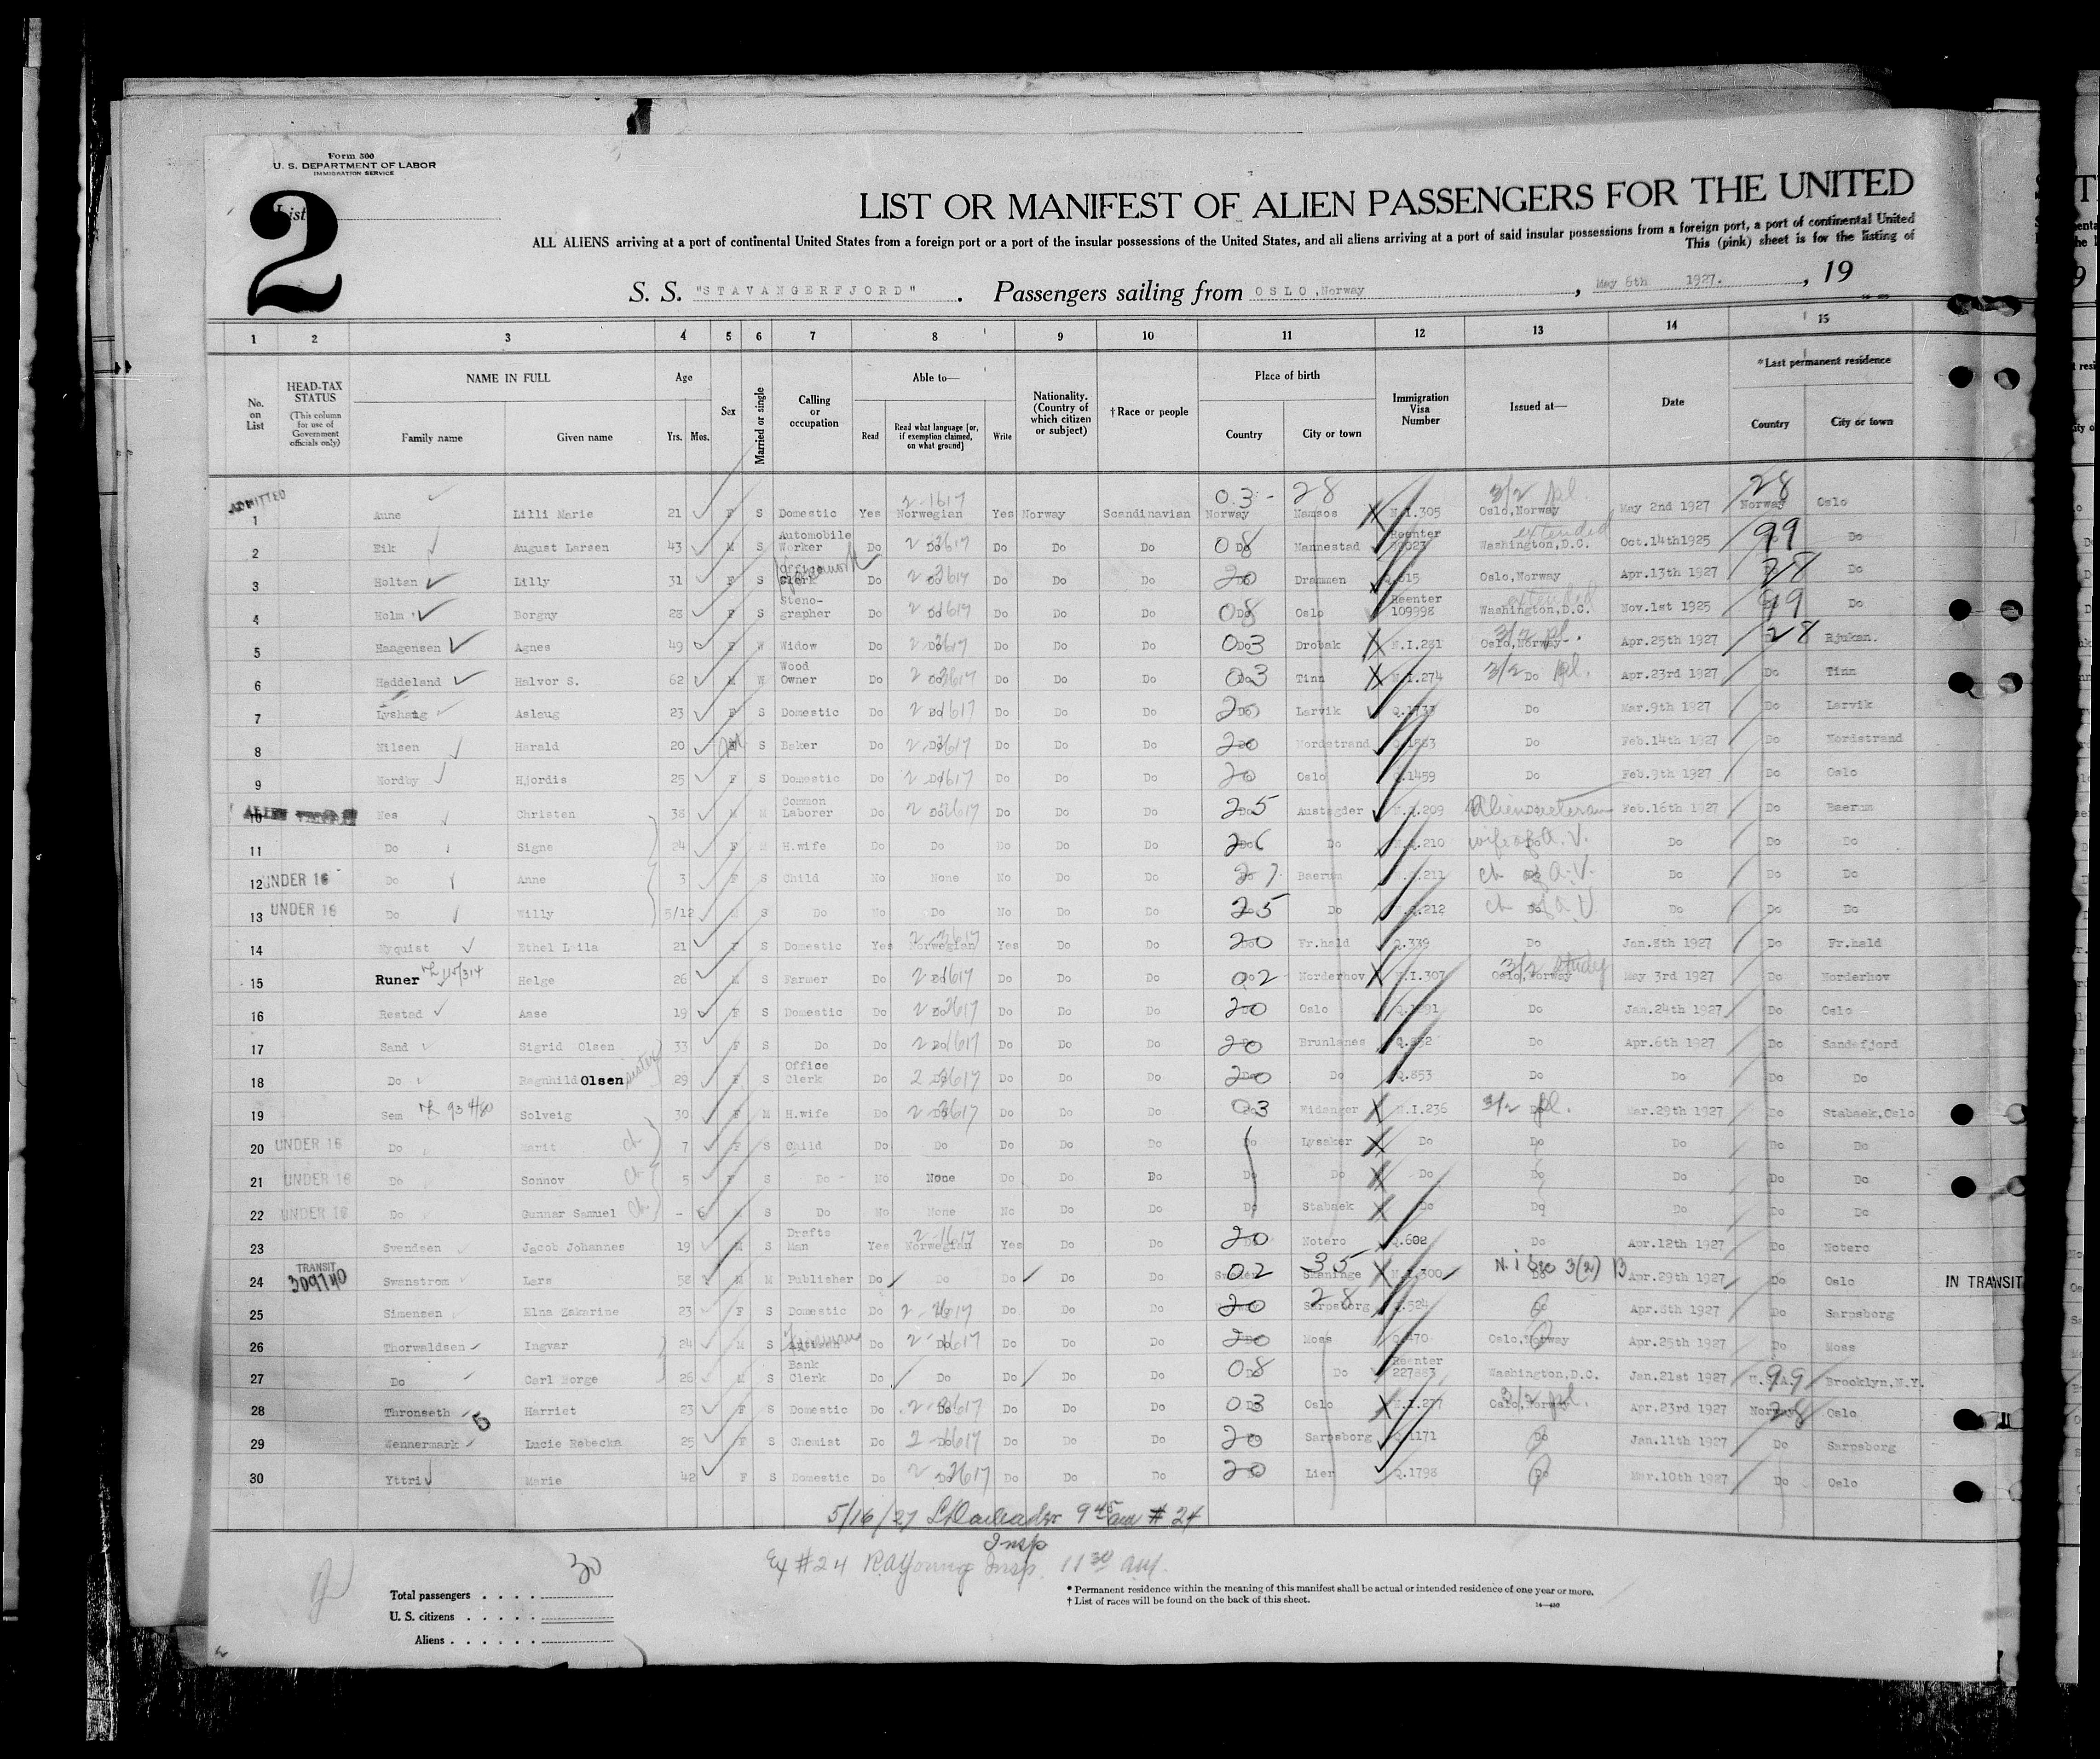 Form 500
U. S. DEPARTMENT OF LABOR
IMMIGRATION SERVICE
List
2
LIST OR MANIFEST OF ALIEN PASSENGERS FOR THE UNITED
ALL ALIENS arriving at a port of continental United States from a foreign port or a port of the insular possessions of the United States, and all aliens arriving at a port of said insular possessions from a foreign port, a port of continental United
This (pink) sheet is for the listing of
S. S. "STAVANGERFJORD". Passengers sailing from OSLO, Norway, May 6th 1927., 19
1 2 3 4 5 6 7 8 9 10 11 12 13 14 15
No. on List
HEAD-TAX STATUS (This column for use of Government officials only)
NAME IN FULL Family name Given name
Age Yrs. Mos.
Sex
Married or single
Calling or occupation
Able to— Read Read what language [or, if exemption claimed, on what ground] Write
Nationality. (Country of which citizen or subject)
† Race or people
Place of birth Country City or town
Immigration Visa Number
Issued at—
Date
*Last permanent residence Country City or town
ADMITTED
1 Aune Lilli Marie 21 F S Domestic Yes Norwegian Yes Norway Scandinavian Norway Namsos N.I.305 Oslo, Norway May 2nd 1927 Norway Oslo
2 Eik August Larsen 43 M S Automobile Worker Do Do Do Do Do Do Mannestad Reenter Washington, D.C. extended Oct.14th1925 99 Do
3 Holtan Lilly 31 F S Clerk Do 2 Do 3617 Do Do Do 20 Drammen Oslo, Norway Apr.13th 1927 28 Do
4 Holm Borgny 28 F S Steno-grapher Do Do Do Do Do 08 Oslo Reenter 109998 Washington, D.C. extended Nov.1st 1925 99 Do
5 Haagensen Agnes 49 F W Widow Do Do Do Do Do 03 Drobak N.I.281 Oslo, Norway 3/2 pl. Apr.25th 1927 28 Rjukan.
6 Haddeland Halvor S. 62 M W Wood Owner Do Do Do Do Do 03 Tinn N.I.274 Do 3/2 pl. Apr.23rd 1927 Do Tinn
7 Lyshaug Aslaug 23 F S Domestic Do Do Do Do Do 20 Larvik Do Mar.9th 1927 Do Larvik
8 Nilsen Harald 20 S Baker Do Do Do Do Do 20 Nordstrand Do Feb.14th 1927 Do Nordstrand
9 Nordby Hjordis 25 F S Domestic Do Do Do Do Do 20 Oslo Q.1459 Do Feb.9th 1927 Do Oslo
10 Nes Christen 38 M M Common Laborer Do Do Do Do Do 25 Austagder 209 Alien veteran Feb.16th 1927 Do Baerum
11 Do Signe 24 F M H.wife Do Do Do Do Do 26 Do 210 wife of A.V. Do Do Do
12 UNDER 16 Do Anne 3 F S Child No None No Do Do 27 Baerum 211 ch of A.V. Do Do Do
13 UNDER 16 Do Willy 5/12 S Do No Do No Do Do 25 Do 212 ch of A.V. Do Do Do
14 Nyquist Ethel Leila 21 F S Domestic Yes Norwegian Yes Do Do 20 Fr.hald Q.339 Do Jan.8th 1927 Do Fr.hald
15 Runer Helge 26 M S Farmer Do Do Do Do Do 02 Norderhov N.I.307 Oslo, Norway 3/2 study May 3rd 1927 Do Norderhov
16 Restad Aase 19 F S Domestic Do Do Do Do Do 20 Oslo Do Jan.24th 1927 Do Oslo
17 Sand Sigrid Olsen 33 F S Do Do Do Do Do Do 20 Brunlanes Do Apr.6th 1927 Do Sandefjord
18 Do Ragnhild Olsen sister 29 F S Office Clerk Do Do Do Do Do 20 Do Q.853 Do Do Do Do
19 Sem Solveig 30 F M H.wife Do Do Do Do Do 03 Eidanger N.I.236 3/2 pl. Mar.29th 1927 Do Stabaek, Oslo
20 UNDER 16 Do Marit ch 7 F S Child Do Do Do Do Do Do Lysaker Do Do Do Do Do
21 UNDER 16 Do Sonnov ch 5 F S Do No None Do Do Do Do Do Do Do Do Do Do
22 UNDER 16 Do Gunnar Samuel ch - 6 M S Do No None No Do Do Do Stabaek Do Do Do Do Do
23 Svendsen Jacob Johannes 19 M S Drafts Man Yes Norwegian Yes Do Do 20 Notero Q.602 Do Apr.12th 1927 Do Notero
24 TRANSIT 309740 Swanstrom Lars 58 M M Publisher Do Do Do Do Do 02 Skaninge 35 N.I.300 Do Apr.29th 1927 Do Oslo IN TRANSIT
25 Simensen Elna Zakarine 23 F S Domestic Do Do Do Do 20 Sarpsborg 28 Q.524 Do Apr.8th 1927 Do Sarpsborg
26 Thorwaldsen Ingvar 24 M S Do Do Do Do Do 20 Moss Oslo, Norway Apr.25th 1927 Do Moss
27 Do Carl Norge 26 M S Bank Clerk Do Do Do Do Do 08 Do Reenter 227883 Washington, D.C. Jan.21st 1927 U.S.A. 99 Brooklyn, N.Y.
28 Thronseth Harriet 23 F S Domestic Do Do Do Do Do 03 Oslo N.I.277 Oslo, Norway 3/2 pl. Apr.23rd 1927 Norway 28 Oslo
29 Wennermark Lucie Rebecka 25 F S Chemist Do Do Do Do Do 20 Sarpsborg 1171 Do Jan.11th 1927 Do Sarpsborg
30 Yttri Marie 42 F S Domestic Do Do Do Do Do 20 Lier Q.1798 Do Mar.10th 1927 Do Oslo
5/16/27 9 45 am # 24
Insp
Ex #24 R.A. Young Insp. 11 30 am.
30
Total passengers
U. S. citizens
Aliens
* Permanent residence within the meaning of this manifest shall be actual or intended residence of one year or more.
† List of races will be found on the back of this sheet.